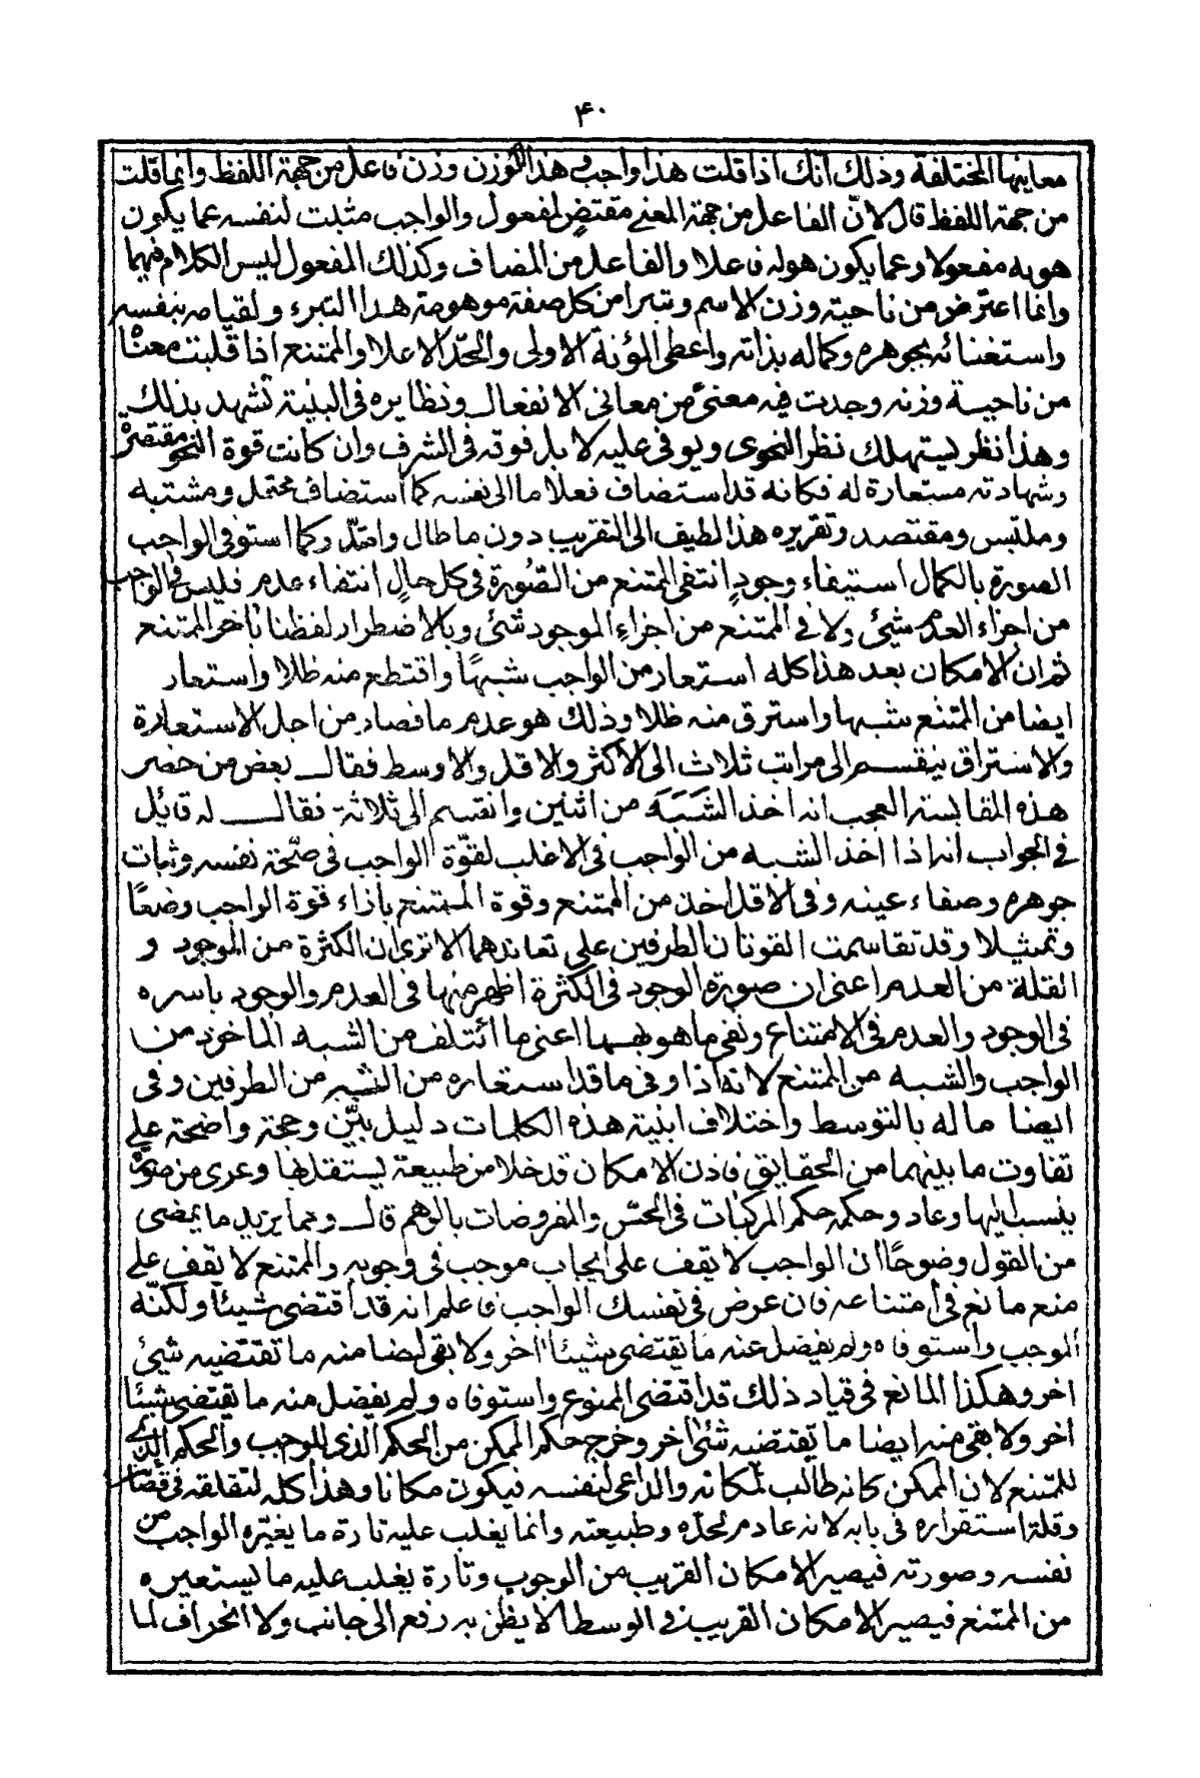 ۴۰
معانيها المختلفة وذلك انك اذا قلت هذا واجب هذا الوزن وزن فاعل من جهة اللفظ وانما قلت
من جهة اللفظ قال لانّ الفاعل من جهة المعنى مقتضٍ لمفعول والواجب مثبت لنفسه عما يكون
هو به مفعولا وعما يكون هو له فاعلا والفاعل من المضاف وكذلك المفعول ليس الكلام فيهما
وانما اعترض من ناحية وزن الاسم وتبرا من كل صفة موهومة هذا التبرء ولقيامه بنفسه
واستغنائه بجوهره وكماله بذاته واعطى المؤنة الاولى والحدّ الاعلا والممتنع اذا قلبت معناه
من ناحية وزنه وجدت فيه معنىً من معانى الانفعال ونظايره فى البنية تشهد بذلك
وهذا نظر يستهلك نظر النحوى ويوفى عليه لا بل فوته فى الشرف وان كانت قوة النحو مقتصرة
وشهادته مستعارة له فكانه قد استضاف فعلا ما الى نفسه كما استضاف محتمل ومشتبه
وملتبس ومقتصد وتقريره هذا لطيف الى التقريب دون ما طال وامتدّ وكما استوفى الواجب
الصورة بالكمال استيفاء وجودٍ انتفى الممتنع من الصّورة فى كل حالٍ انتفاء عدم فليس فى الواجب
من اجزاء العدم شئ ولا فى الممتنع من اجزاءِ الموجود شئ وبالاضطرار لفظنا باخر الممتنع
ثم ان الامكان بعد هذا كله استعار من الواجب شبهًا واقتطع منه ظلا واستعار
ايضا من الممتنع شبها واسترق منه ظلا وذلك هو عدم ما فصار من اجل الاستعارة
والاستراق ينقسم الى مراتب ثلاث الى الاكثر والاقل والاوسط فقال بعض من حضر
هذه المقابسة العجب انه اخذ الشَبَه من اثنين وانقسم الى ثلاثة فقال له قايل
فى الجواب انه اذا اخذ الشبه من الواجب فى الاغلب لقوّة الواجب فى صحّة نفسه وثبات
جوهره وصفاء عينه وفى الاقل اخذ من الممتنع وقوة الممتنع بازاء قوة الواجب وضعًا
وتمثيلا وقد تقاسمت القوتان الطرفين على تعاندهما الا ترى ان الكثرة من الموجود و
القلة من العدم اعنى ان صورة الوجود فى الكثرة اظهر منها فى العدم والوجود باسره
فى الوجود والعدم فى الامتناع ونفى ما هو بهما اعنى ما ائتلف من الشبه الماخوذ من
الواجب والشبه من الممتنع لانه اذا وفى ما قد استعاره من الشبه من الطرفين وفى
ايضا ما له بالتوسط واختلاف ابنية هذه الكلمات دليل بيّن وحجة واضحة على
تفاوت ما بينهما من الحقايق فاذن الامكان قد خلا من طبيعة يستقل بها وعرى من صورة
ينسب اليها وعاد وحكمه حكم المركبات فى الحسّ والمفروضات بالوهم قال ومما يزيد ما يمضى
من القول وضوحًا ان الواجب لا يقف على ايجاب موجب فى وجوبه والممتنع لا يقف على
منع مانع فى امتناعه فان عرض فى نفسك الواجب فاعلم انه قد اقتضى شيئًا ولكنّه
الموجب واستوفاه ولم يفضل عنه ما يقتضى شيئا اخر ولا بقى ايضا منه ما تقتضيه شئ
اخر وهكذا المانع فى قياد ذلك قد اقتضى الممنوع واستوفاه ولم يفضل منه ما يقتضى شيئا
اخر ولا بقى منه ايضا ما يقتضيه شئ اخر وخرج حكم الممكن من الحكم الذى للموجب والحكم الذى
للممتنع لان الممكن كانه طالب لمكانه والداعى لنفسه فيكون مكانا وهذا كله لتقلقه فى
وقلة استقراره فى بابه لانه عادم لحدّه وطبيعته وانما يغلب عليه تارة ما يغيّره الواجب من
نفسه وصورته فيصير الامكان القريب من الوجوب وتارة يغلب عليه ما يستعيره
من الممتنع فيصير الامكان القريب فى الوسط لا يظن به رفع الى جانب ولا انحراف لما